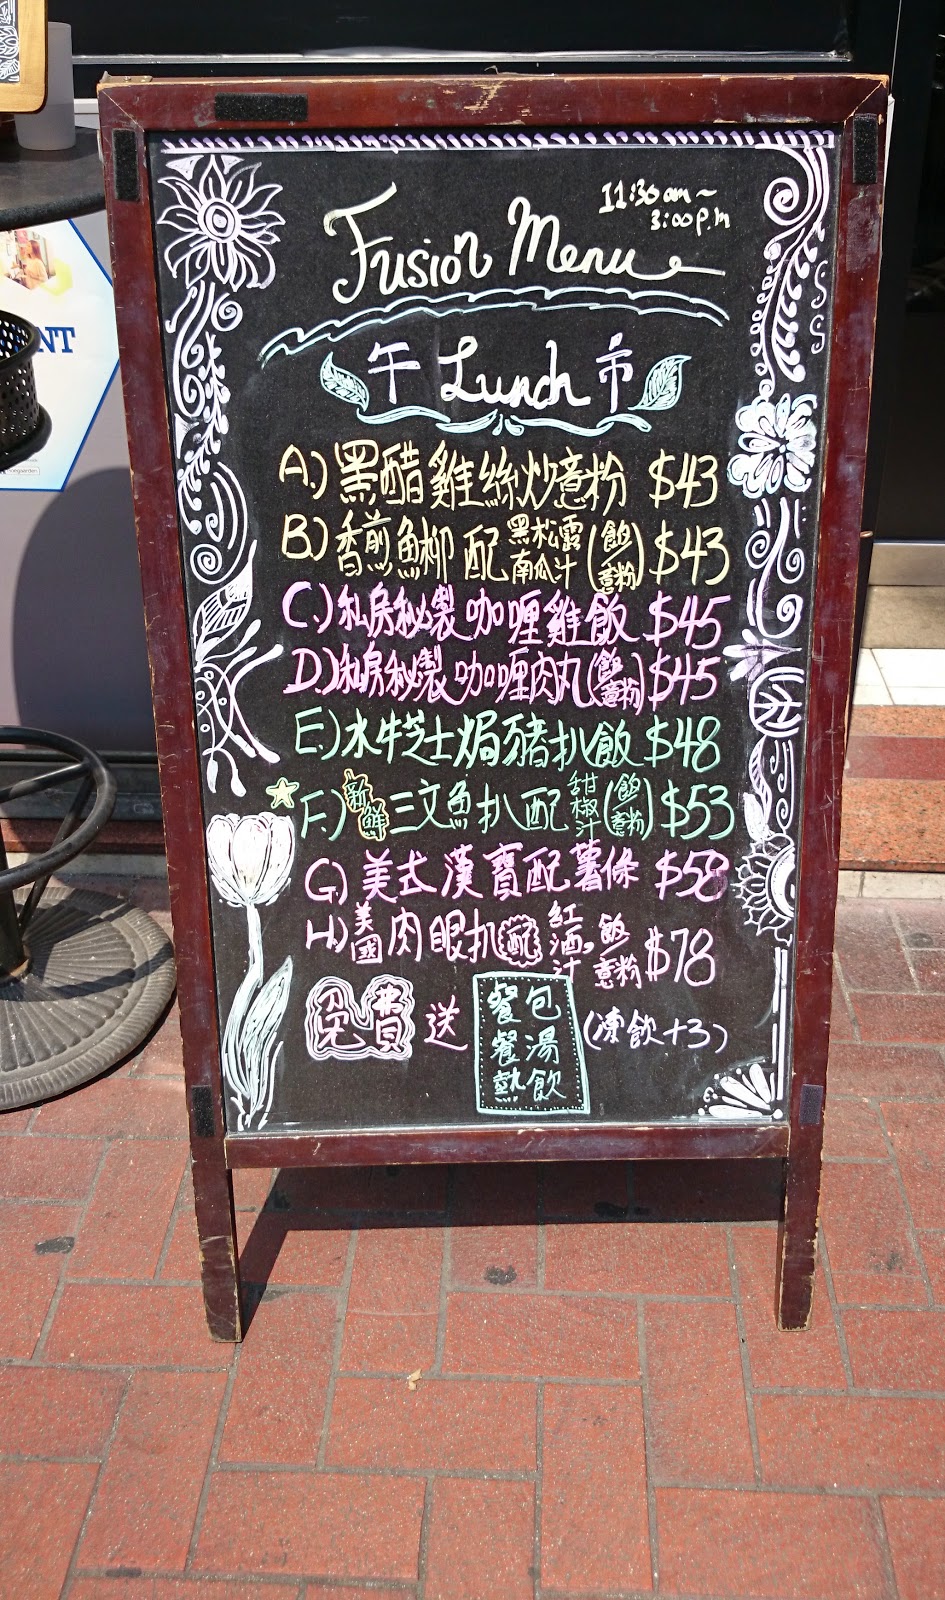 Fusion Menu 11:30am~
3:00p.m
午 Lunch 市
A.) 黑醋雞絲炒意粉 $43
B.) 香煎魚柳 配 黑松露南瓜汁 (飽/意粉) $43
C.) 私房秘製咖喱雞飯 $45
D.) 私房秘製咖喱肉丸 (飽/意粉) $45
E.) 水牛芝士焗豬扒飯 $48
F.) 新鮮 三文魚扒配 甜椒汁 (飽/意粉) $53
G.) 美式漢寶配薯條 $58
H.) 美國 肉眼扒 配 紅酒汁, 飯/意粉 $78
免費 送 (凍飲+3)
餐包
餐湯
熱飲
NT